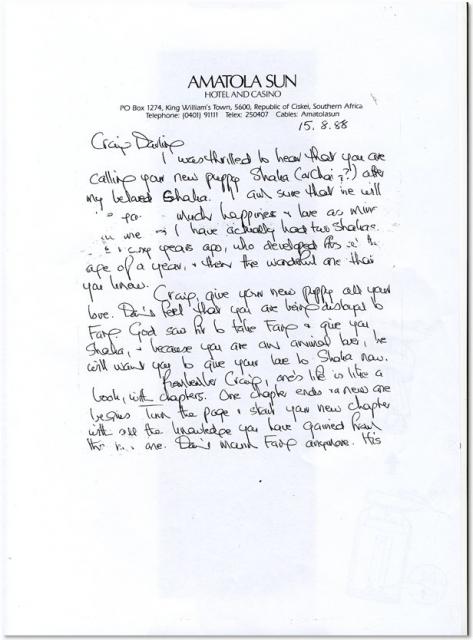 AMATOLA SUN
HOTEL AND CASINO
PO Box 1274, King William's Town, 5600, Republic of Ciskei, Southern Africa
Telephone: (0401) 91111 Telex: 250407 Cables: Amatolasun
15.8.88
Craig Darling
I was thrilled to hear that you are
calling your new puppy Shaka (or Chaka?) after
my beloved Shaka. I am sure that he will
much happiness + love as mine
me I have actually had two Shakas.
years ago, who developed fits at the
age of a year, + then the wonderful one that
you know.
Craig, give your new puppy all your
love. Don't feel that you are being disloyal to
God saw fit to take + give you
Shaka, + because you are an animal lover, he
will want you to give your love to Shaka now.
Remember Craig, one's life is like a
book, with chapters. One chapter ends + a new one
begins. Turn the page + start your new chapter
with all the knowledge you have gained from
this one. Don't mourn anymore. His